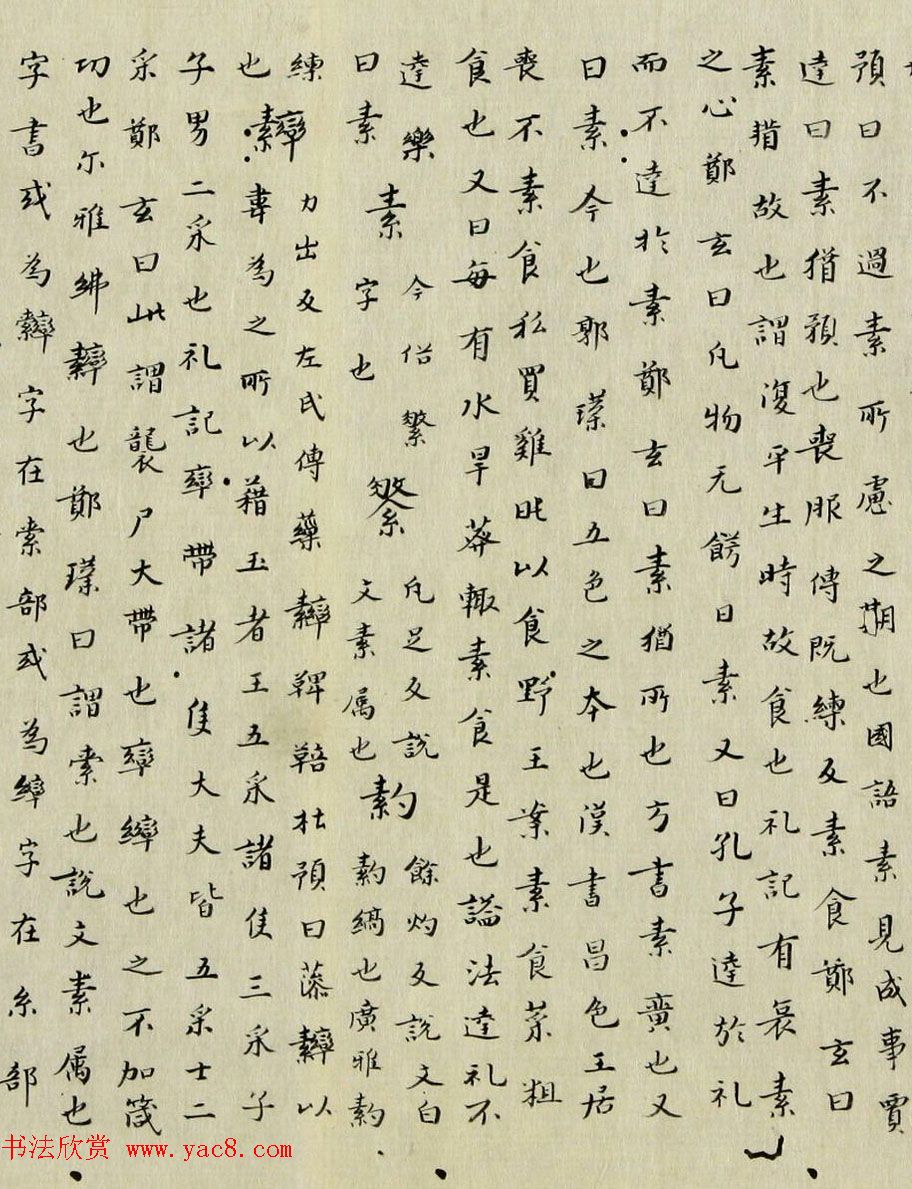 預曰不過素所慮之期也國語素見成事賈
逵曰素猶預也喪服傳既練反素食鄭玄曰
素猶故也謂復平生時故食也礼記有哀素
之心鄭玄曰凡物无餝曰素又曰孔子達於礼
而不達於素鄭玄曰素猶所也方書素賷也又
曰素今也郭璞曰五色之夲也漢書昌邑王居
喪不素食私買雞肫以食野王案素食菜粗
食也又曰每有水旱莽輙素食是也謚法達礼不
達樂曰素
素 今俗字也
繁 凡足反說文素属也
䋤 餘灼反說文白䋤縞也廣雅䋤練也
䋫 力出反左氏傳藻䋫鞞鞛杜預曰藻䋫以
韋為之所以藉玉者王五采諸侯三采子
子男二采也礼記率帶諸侯大夫皆五采士二
采鄭玄曰此謂襲尸大帶也率繂也之不加箴
功也尔雅紼䋫也鄭璞曰謂索也說文素属也
字書或為䋫字在索部或為繂字在糸部
书法欣赏 www.yac8.com